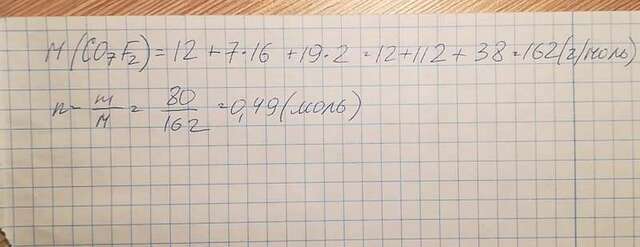 M(CO₇F₂) = 12 + 7·16 + 19·2 = 12 + 112 + 38 = 162 (г/моль)
n = m/M = 80/162 = 0,49 (моль)